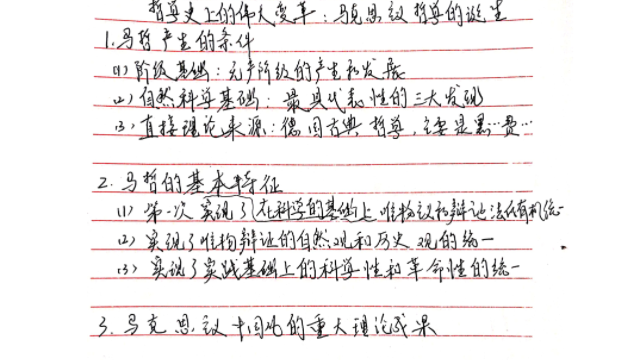 哲学史上的伟大变革：马克思议哲学的诞生
1.马哲产生的条件
(1)阶级基础：无产阶级的产生和发展
(2)自然科学基础：最具代表性的三大发现
(3)直接理论来源：德国古典哲学，主要是黑…费…
2.马哲的基本特征
(1)第一次实现了在科学的基础上唯物议和辩证法的有机统一
(2)实现了唯物辩证的自然观和历史观的统一
(3)实现了实践基础上的科学性和革命性的统一
3.马克思议中国化的重大理论成果